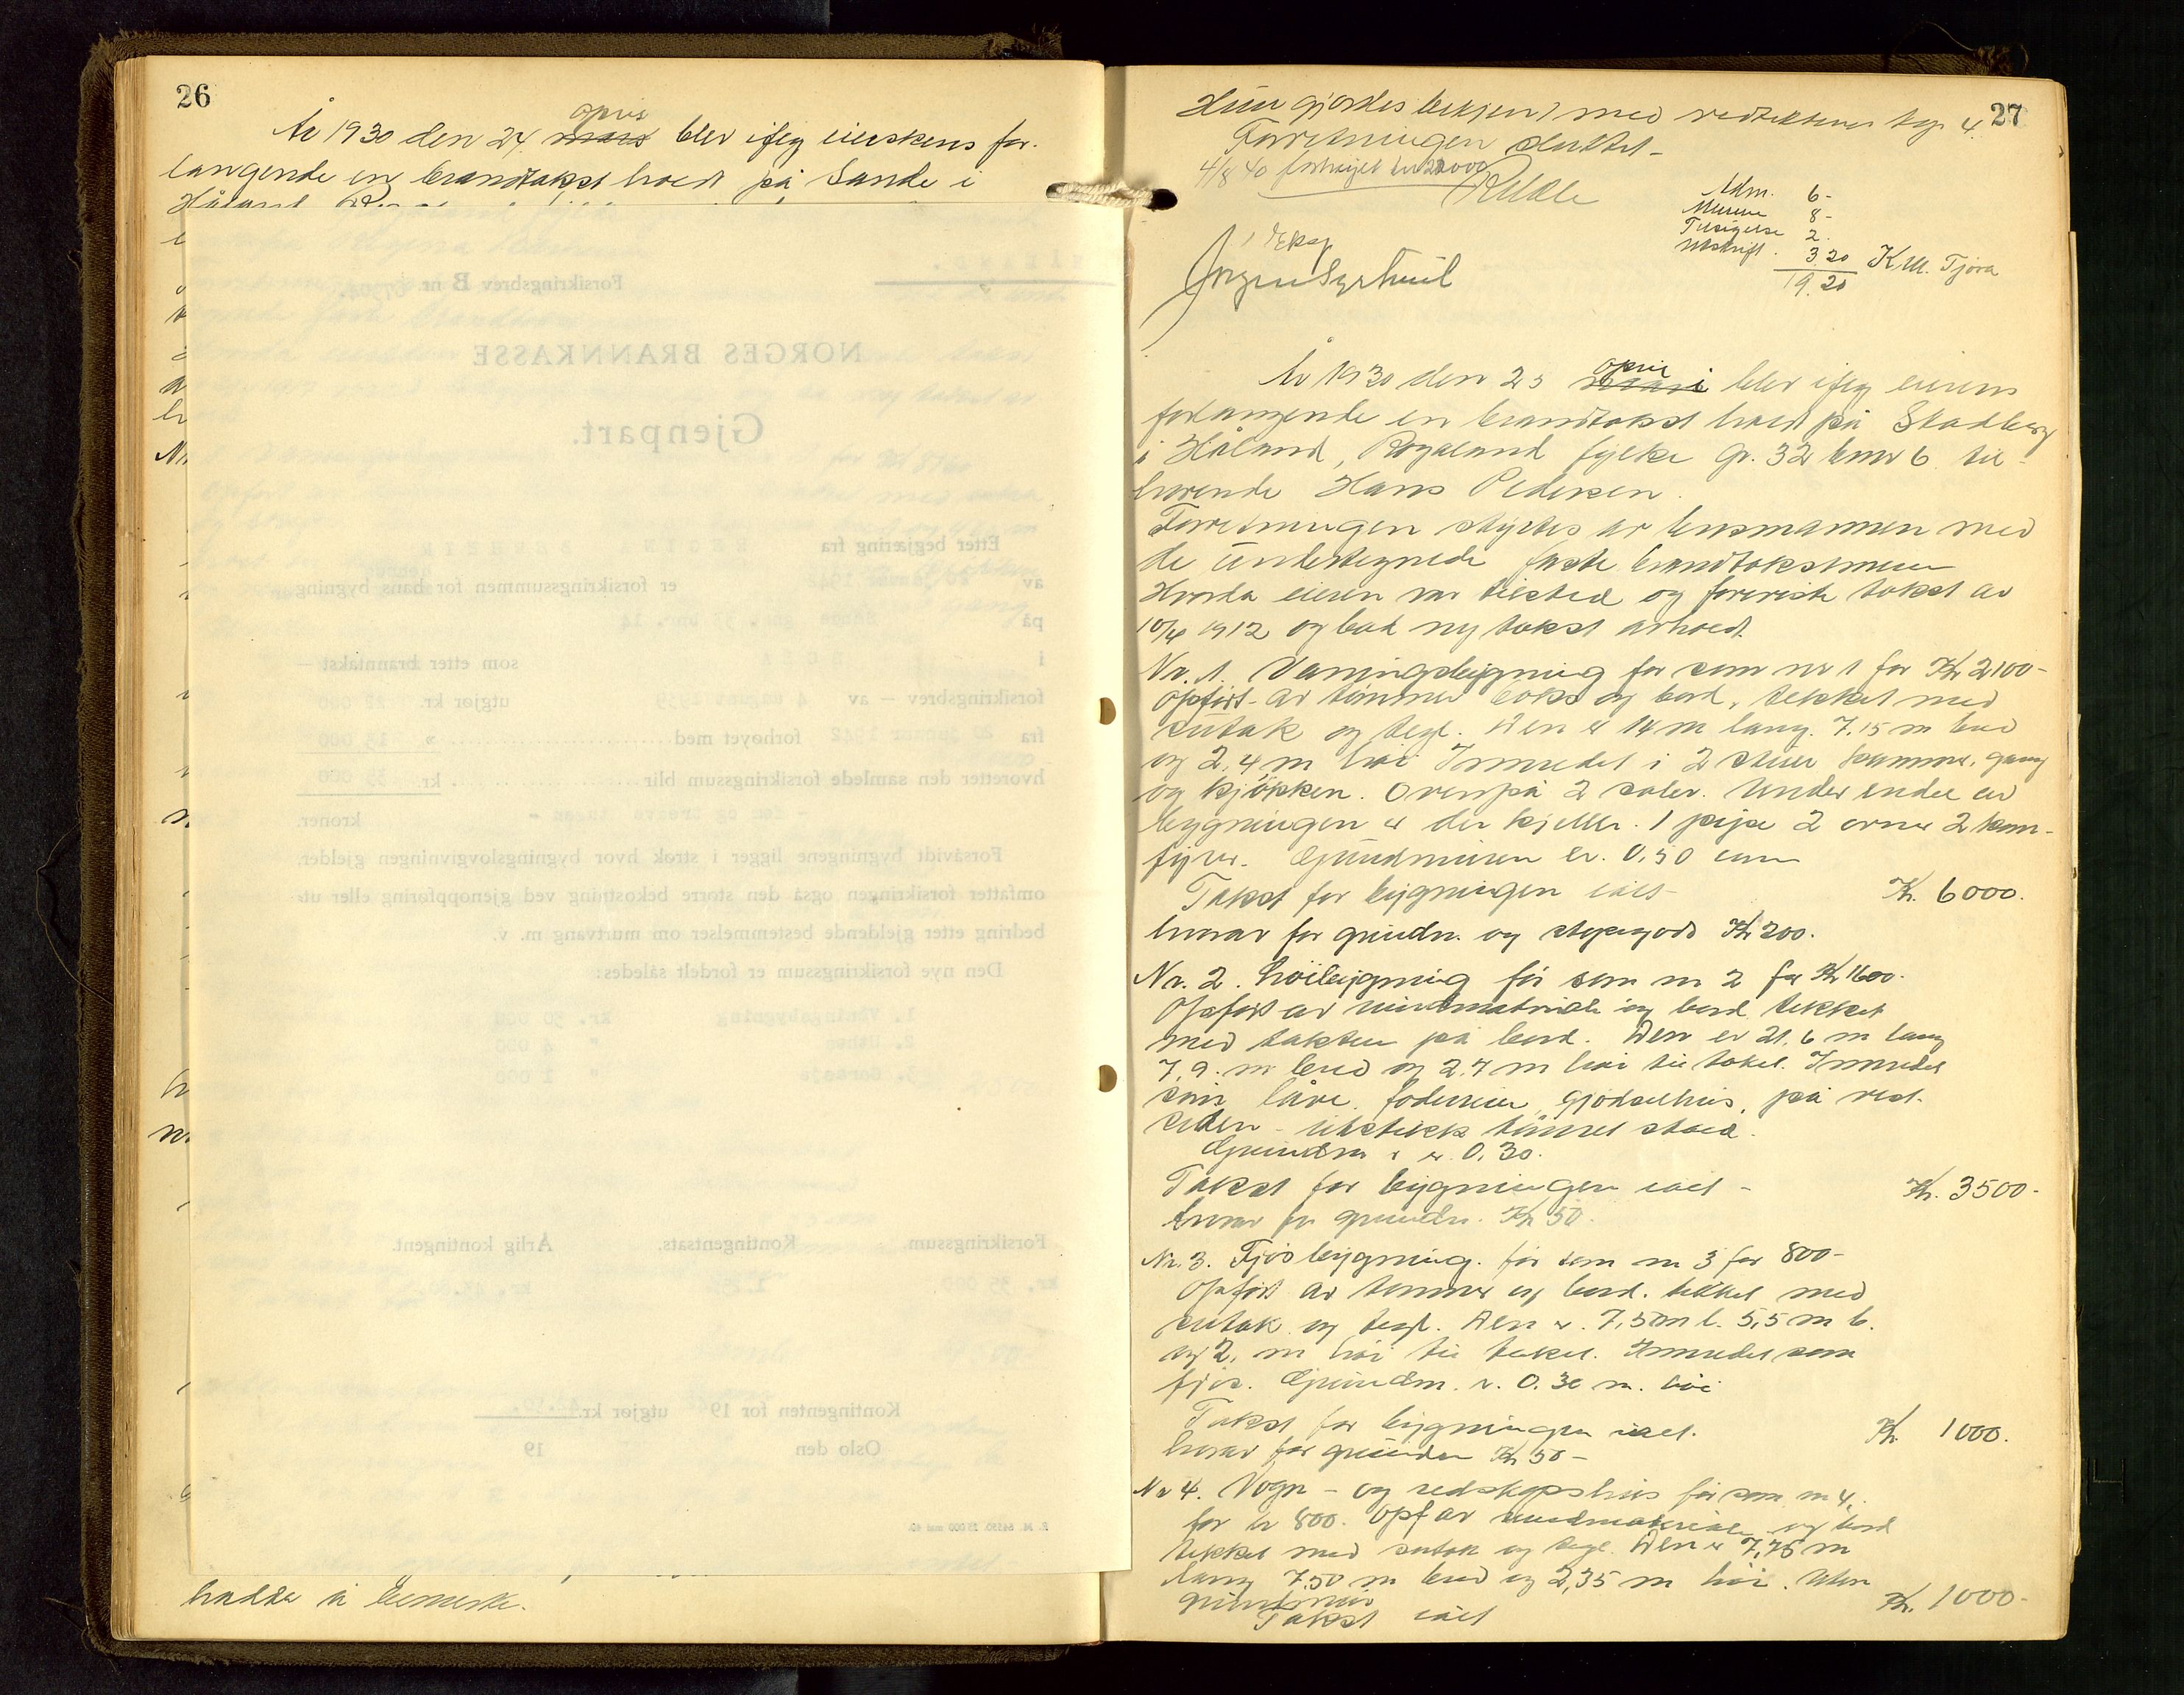 26
År 1930 den 24. april mars blev ifølg eierskens for-
langende en brandtakst holdt på Sande i
Forsikringsbrev B nr.
NORGES BRANNKASSE
Gjenpart.
Etter begjæring fra
av 20 januar 1942 er forsikringssummen for hans bygning
på gnr. 37 bnr. 14
i som etter branntakst —
forsikringsbrev — av 4 august 1939 utgjør kr. 22 000
fra 20 januar 1942 forhøyet med » 13 000
hvoretter den samlede forsikringssum blir kr. 35 000
kroner.
Forsåvidt bygningene ligger i strøk hvor bygningslovgivningen gjelder,
omfatter forsikringen også den større bekostning ved gjenoppføring eller ut-
bedring etter gjeldende bestemmelser om murtvang m. v.
Den nye forsikringssum er fordelt således:
1. Våningsbygning kr. 30 000
2. Uthus " 4 000
3. " 1 000
Forsikringssum. Kontingentsats. Årlig kontingent.
kr. 35 000
Kontingenten for 19 utgjør kr.
Oslo den 19
hadde å bemerke.
27
Hun gjordes bekjent med vedtektene byg 4.
Forretningen sluttet -
4/8 40 forhøiet til 22000
Adm. 6-
8-
Tilsigelse 2.
Utskrift. 3.20
19.20
K M. Tjora
År 1930 den 25 april mars blev ifølg eierens
forlangende en brandtakst holdt på Skadberg
i Håland, Rogaland fylke Gr. 32 bnr 6 til-
hørende Hans Pedersen.
Forretningen styrtes av lensmannen med
de undertegnede faste brandtakstmenn
Hvorda eieren var tilsted og foreviste takst av
10/4 1912 og bad ny takst avholdt.
Nr. 1. Vaningsbygning før som nr 1 for Kr 2100-
Opført av tømmer boks og bord, tekket med
sutak og tegl. Den er 14 m lang. 7,15 m bred
og 2,4 m høi Innredet i 2 stuer kammer, gang
og kjøkken. Ovenpå 2 saler. Under endel av
bygningen er der kjeller. 1 pipe 2 ovner 2 kom-
fyrer. Grundmuren er. 0,50 cm
Takst for bygningen ialt Kr. 6000.
hvorav for grundm. og støpegods Kr 200.
Nr. 2. høibygning før som nr 2 for Kr 1600.
Opført av mindmateriale og bord tekket
med taksten på bord. Den er 21,6 m lang
7,9. m bred og 2,7 m høi til taket. Innredet
som låve. foderrum, gjødselhus, på vest-
siden - utstikk tømret stald.
Grundm r er 0,30.
Takst for bygningen ialt - Kr. 3500-
hvorav for grundm. Kr 50.
Nr. 3. Fjøsbygning. før som nr 3 for 800-
Opført av tømmer og bord. tekket med
sutak og tegl. Den er. 7,5 m l. 5,5 m b.
og 2. m høi til taket. Innredet som
fjøs. Grundm. r. 0.30 m. høi
Takst for bygningen ialt. Kr 1000.
hvorav for grundm Kr 50-
Nr 4. Vogn- og redskapshus før som nr 4,
for kr 800. Opf av mindmateriale og bord
tekket med sutak og tegl. Den er 7,75 m
lang 7,50 m bred og 2,35 m høi. Uten
grundmur
Takst ialt Kr. 1000-